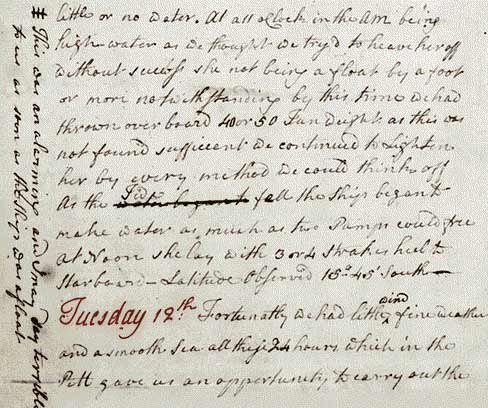 little or no water. At a 11 oClock in the AM being
high-water as we thought we try'd to heave her off
without success she not being a float by a foot
or more notwithstanding by this time we had
thrown over board 40 or 50 Tun weight as this was
not found sufficient we continued to Lighten
her by every method we could think off
As the water began to Tide fell the Ship began to
make water as much as two Pumps could free
at Noon she lay with 3 or 4 strakes heel to
Starboard - Latitude Observed 15°.45' South -
Tuesday 12th. Fortunatly we had little wind fine weather
and a smooth Sea all these 24 hours which in the
PM gave us an oppertunity to carry out the
# This was an alarming and I may say terrible
to us as soon as the Ship was afloat